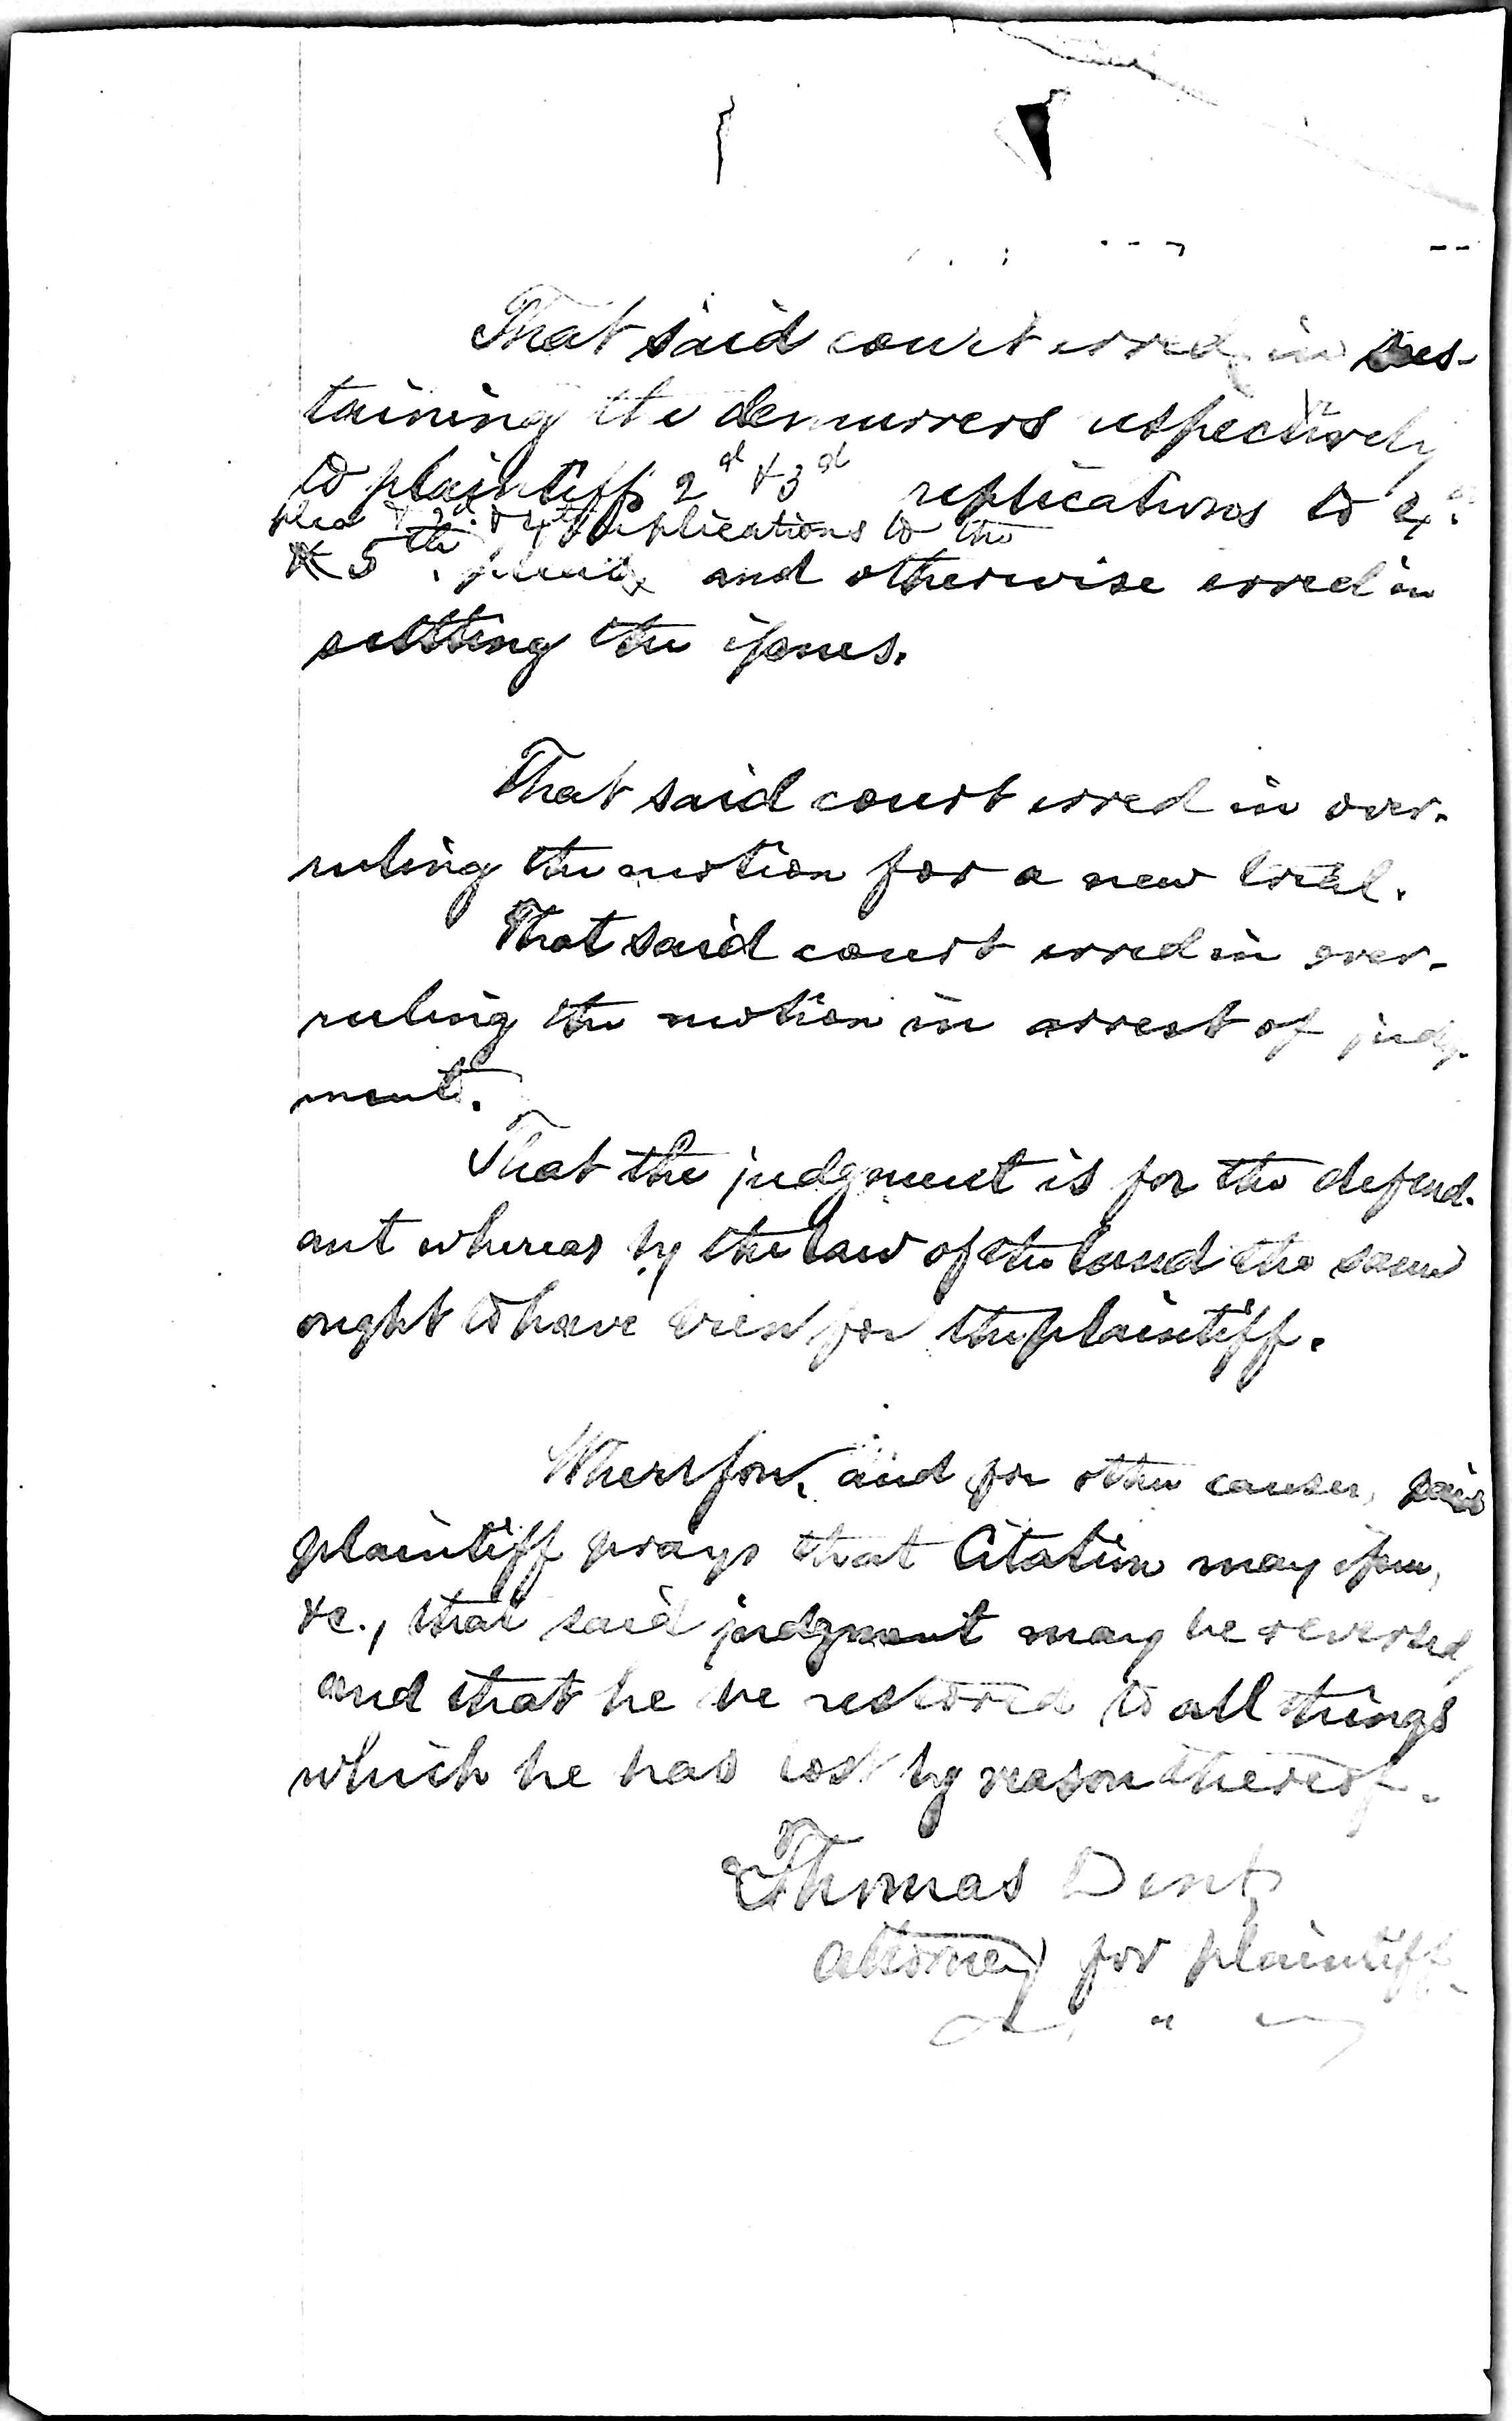 That said court erred in sus-
taining the demurrers respectively
to plaintiffs 2d & 3d replications to 4th
plea & 2d & 4th replications to the
& 5th plea, and otherwise erred in
settling the issues.
That said court erred in over-
ruling the motion for a new trial.
That said court erred in over-
ruling the motion in arrest of judg-
ment.
That the judgment is for the defend-
ant whereas by the law of the land the same
ought to have been for the plaintiff.
Wherefore, and for other causes, said
plaintiff prays that Citation may issue,
&c., that said judgment may be reversed,
and that he be restored to all things
which he has lost by reason thereof.
Thomas Dent
Attorney for plaintiff